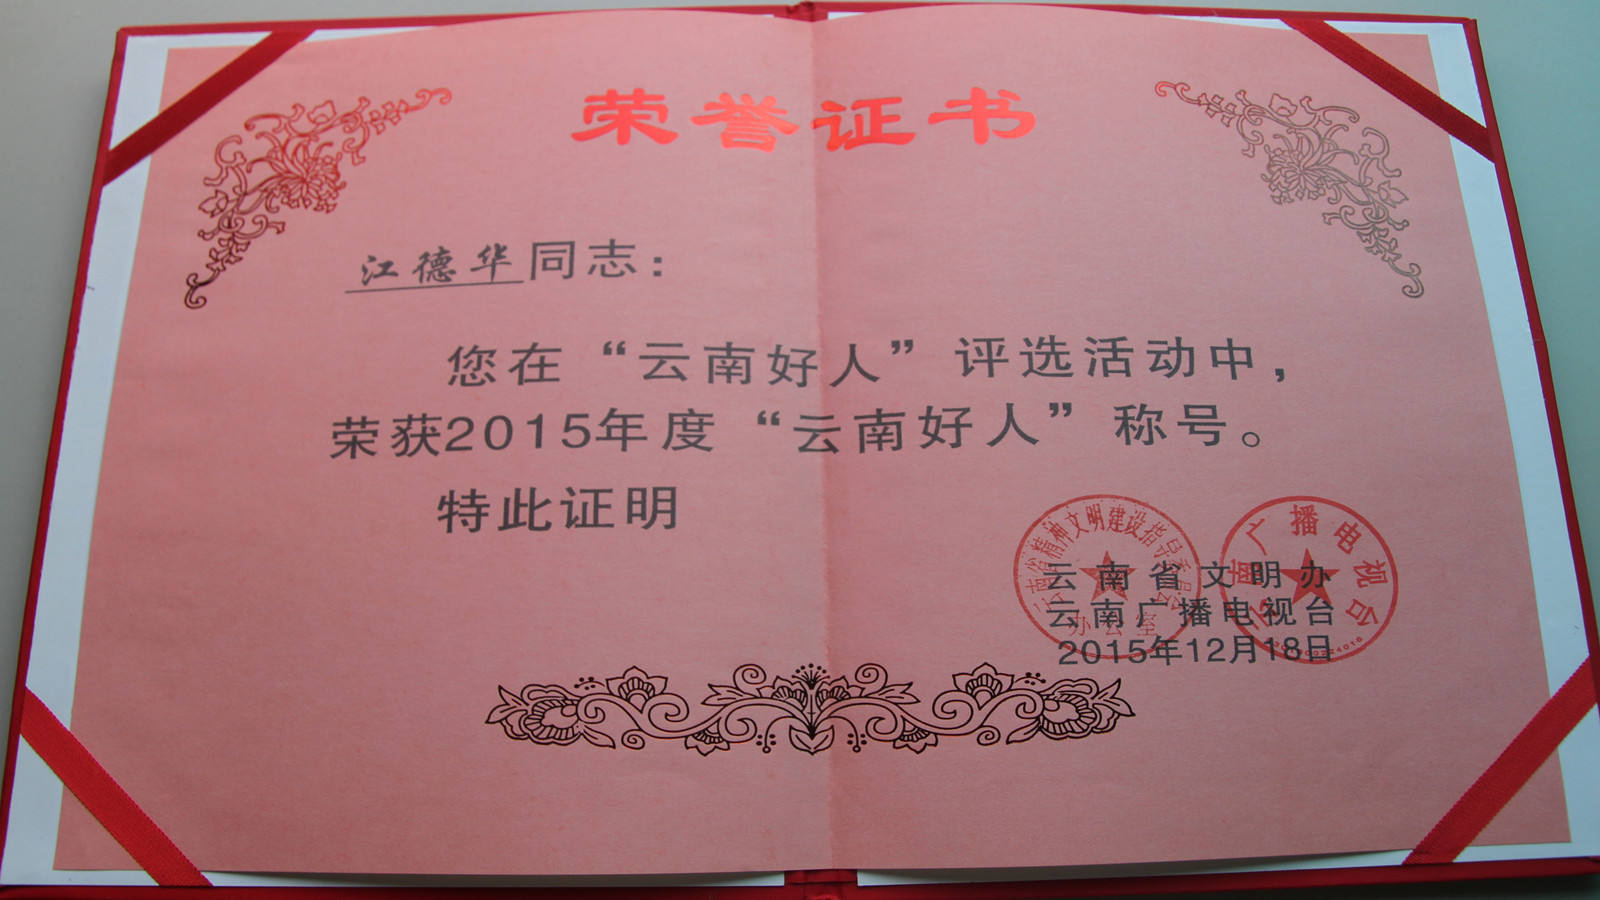 荣誉证书
江德华同志：
您在“云南好人”评选活动中，
荣获2015年度“云南好人”称号。
特此证明
云南省精神文明建设指导委员会
办公室
云南广播电视台
云南省文明办
云南广播电视台
2015年12月18日